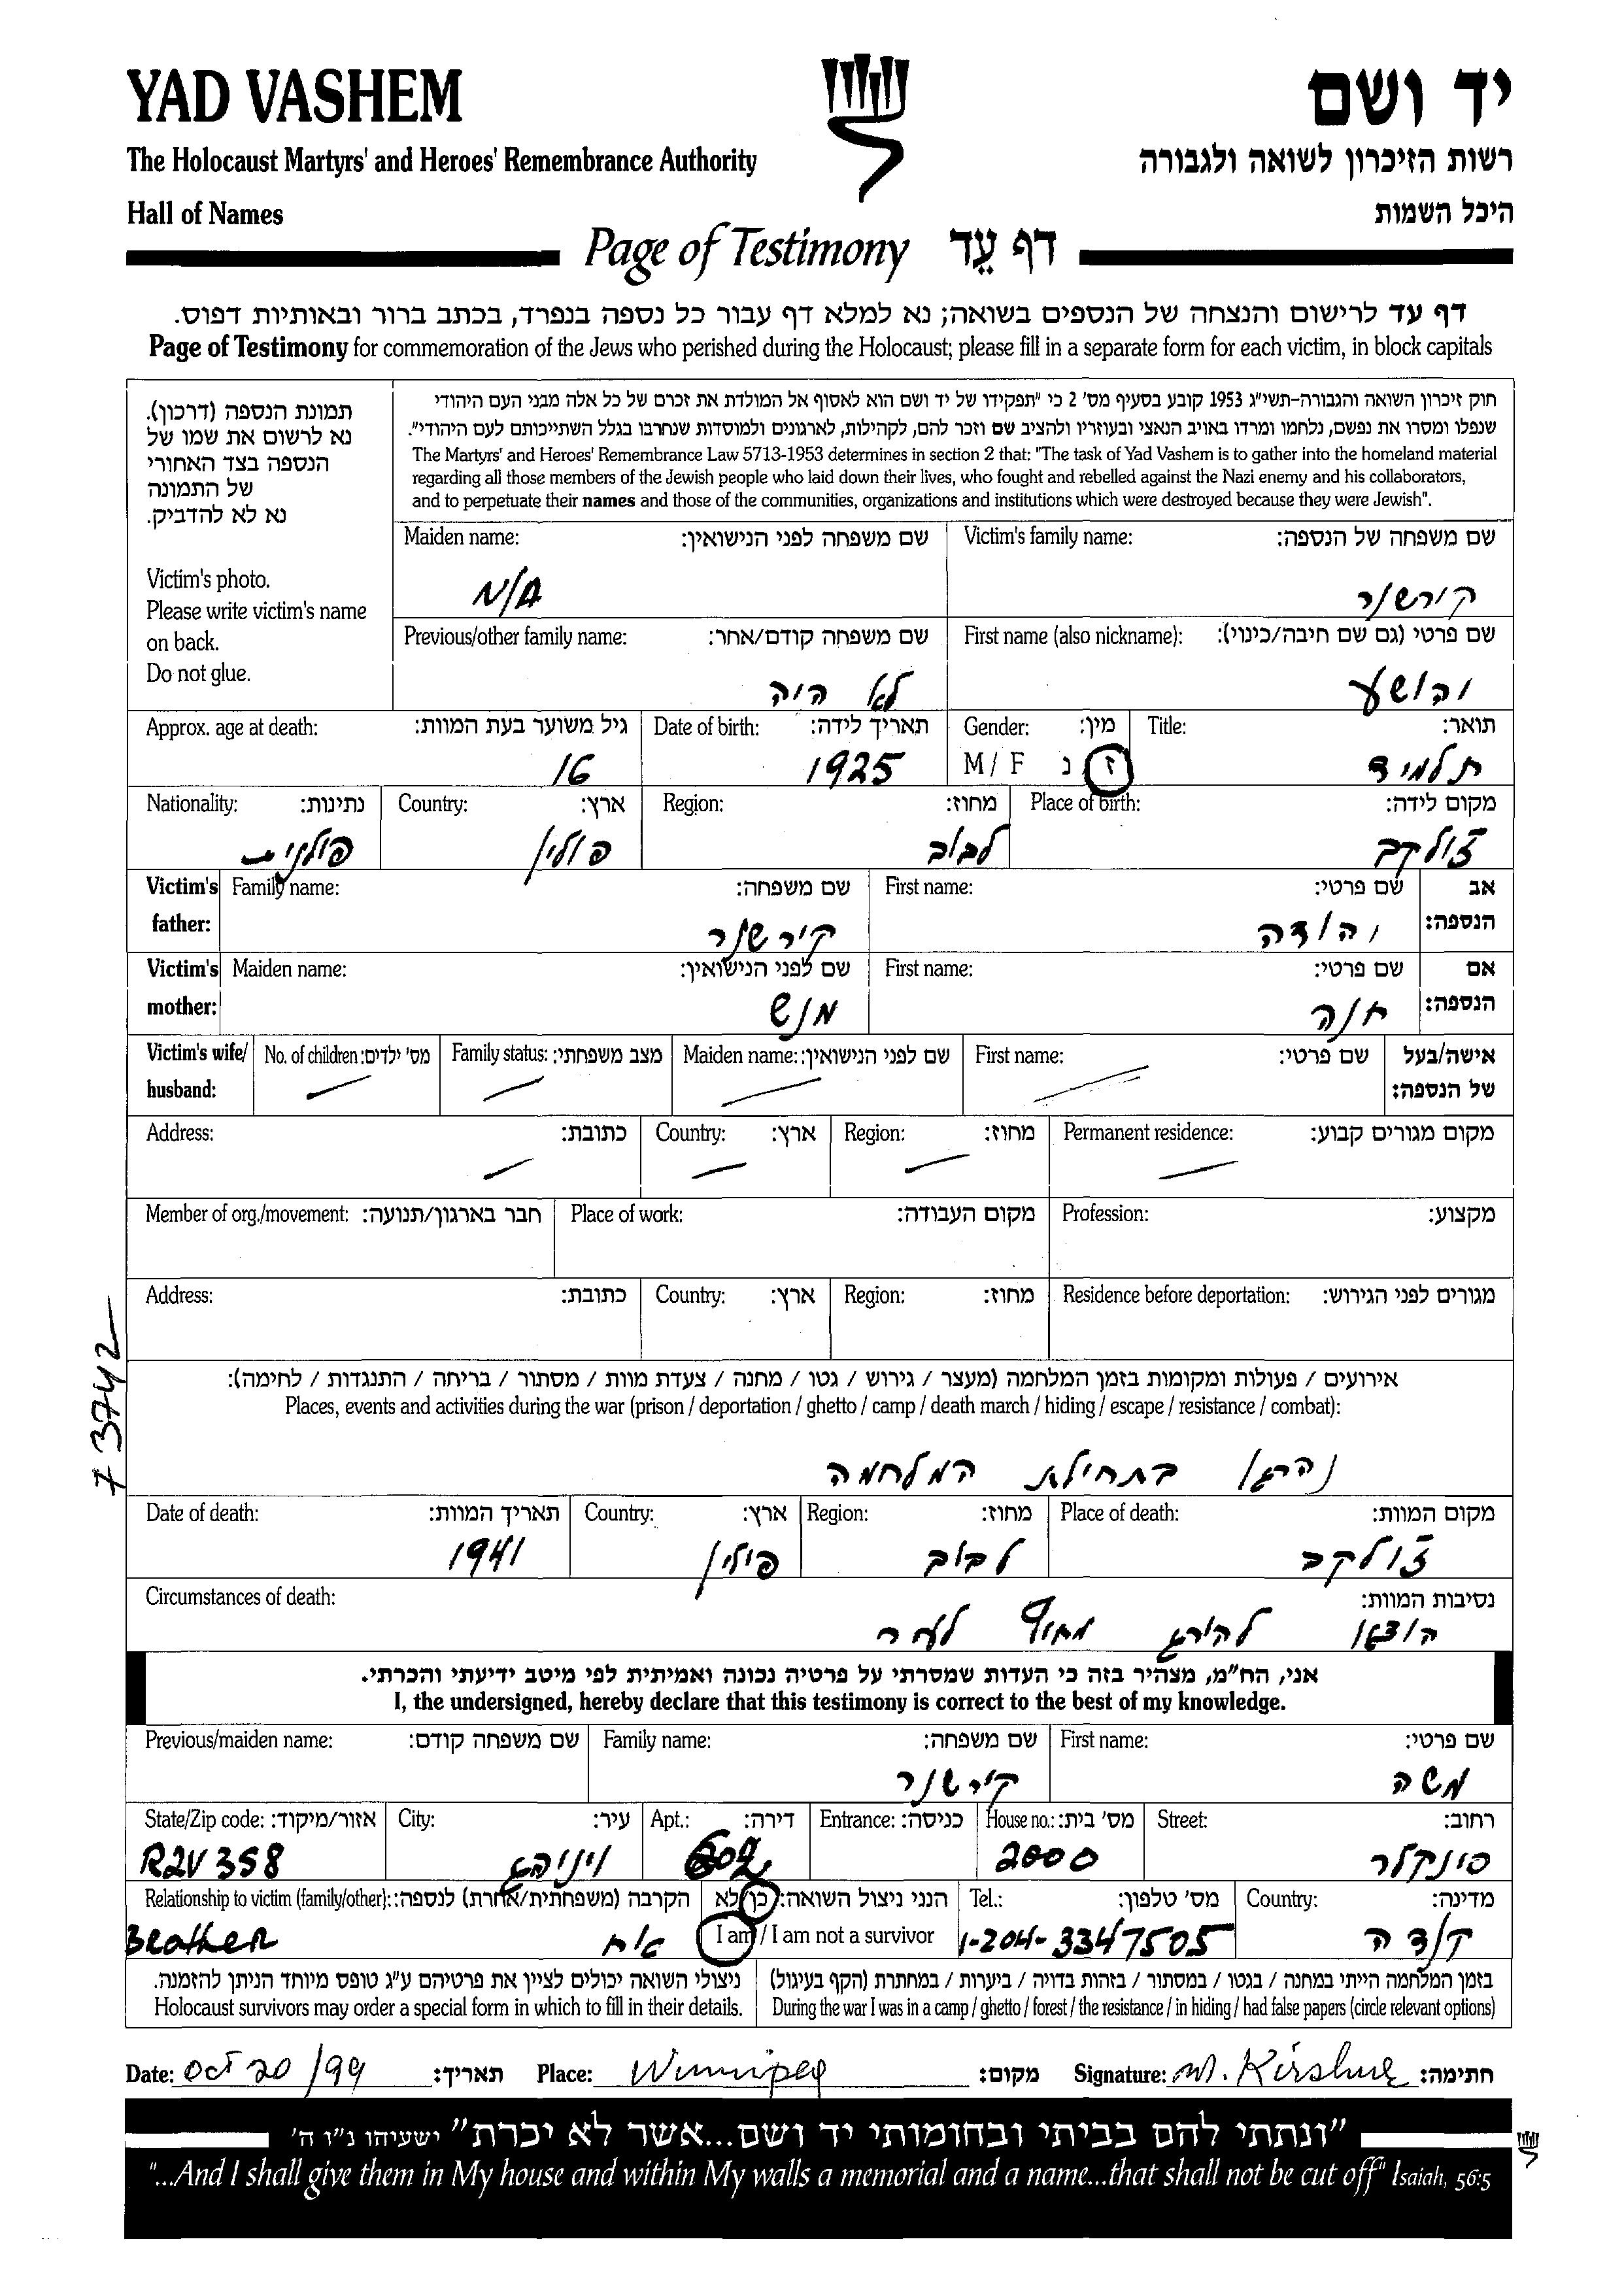 YAD VASHEM
יד ושם
The Holocaust Martyrs' and Heroes' Remembrance Authority
רשות הזיכרון לשואה ולגבורה
Hall of Names
היכל השמות
Page of Testimony דף עֵד
דף עד לרישום והנצחה של הנספים בשואה; נא למלא דף עבור כל נספה בנפרד, בכתב ברור ובאותיות דפוס.
Page of Testimony for commemoration of the Jews who perished during the Holocaust; please fill in a separate form for each victim, in block capitals
תמונת הנספה (דרכון).
נא לרשום את שמו של
הנספה בצד האחורי
של התמונה
נא לא להדביק.
Victim's photo.
Please write victim's name
on back.
Do not glue.
חוק זיכרון השואה והגבורה-תשי"ג 1953 קובע בסעיף מס' 2 כי "תפקידו של יד ושם הוא לאסוף אל המולדת את זכרם של כל אלה מבני העם היהודי
שנפלו ומסרו את נפשם, נלחמו ומרדו באויב הנאצי ובעוזריו ולהציב שם וזכר להם, לקהילות, לארגונים ולמוסדות שנחרבו בגלל השתייכותם לעם היהודי".
The Martyrs' and Heroes' Remembrance Law 5713-1953 determines in section 2 that: "The task of Yad Vashem is to gather into the homeland material
regarding all those members of the Jewish people who laid down their lives, who fought and rebelled against the Nazi enemy and his collaborators,
and to perpetuate their names and those of the communities, organizations and institutions which were destroyed because they were Jewish".
Victim's family name: שם משפחה של הנספה:
קירשנר
Maiden name: שם משפחה לפני הנישואין:
N/A
First name (also nickname): שם פרטי (גם שם חיבה/כינוי):
יהושע
Previous/other family name: שם משפחה קודם/אחר:
לא היה
Title: תואר:
תלמיד
Gender: מין:
M / F ז נ
Date of birth: תאריך לידה:
1925
Approx. age at death: גיל משוער בעת המוות:
16
Place of birth: מקום לידה:
זולקב
Region: מחוז:
לבוב
Country: ארץ:
פולין
Nationality: נתינות:
פולנית
Victim's father: אב הנספה:
First name: שם פרטי:
יהודה
Family name: שם משפחה:
קירשנר
Victim's mother: אם הנספה:
First name: שם פרטי:
חנה
Maiden name: שם לפני הנישואין:
מנש
Victim's wife/ husband: אישה/בעל של הנספה:
First name: שם פרטי:
Maiden name: שם לפני הנישואין:
Family status: מצב משפחתי:
No. of children: מס' ילדים:
Permanent residence: מקום מגורים קבוע:
Region: מחוז:
Country: ארץ:
Address: כתובת:
Profession: מקצוע:
Place of work: מקום העבודה:
Member of org./movement: חבר בארגון/תנועה:
Residence before deportation: מגורים לפני הגירוש:
Region: מחוז:
Country: ארץ:
Address: כתובת:
73742
אירועים / פעולות ומקומות בזמן המלחמה (מעצר / גירוש / גטו / מחנה / צעדת מוות / מסתור / בריחה / התנגדות / לחימה):
Places, events and activities during the war (prison / deportation / ghetto / camp / death march / hiding / escape / resistance / combat):
נהרג בתחילת המלחמה
Place of death: מקום המוות:
זולקב
Region: מחוז:
לבוב
Country: ארץ:
פולין
Date of death: תאריך המוות:
1941
Circumstances of death: נסיבות המוות:
הוצא להורג מחוץ לעיר
אני, הח"מ, מצהיר בזה כי העדות שמסרתי על פרטיה נכונה ואמיתית לפי מיטב ידיעתי והכרתי.
I, the undersigned, hereby declare that this testimony is correct to the best of my knowledge.
First name: שם פרטי:
משה
Family name: שם משפחה:
קירשנר
Previous/maiden name: שם משפחה קודם:
Street: רחוב:
סינקלר
House no.: מס' בית:
2000
Entrance: כניסה:
Apt.: דירה:
602
City: עיר:
ויניפג
State/Zip code: אזור/מיקוד:
R2V 3S8
Country: מדינה:
קנדה
Tel.: מס' טלפון:
1-204-3347505
הנני ניצול השואה: כן/לא
I am / I am not a survivor
Relationship to victim (family/other): הקרבה (משפחתית/אחרת) לנספה:
Brother אח
בזמן המלחמה הייתי במחנה / בגטו / במסתור / בזהות בדויה / ביערות / במחתרת (הקף בעיגול)
During the war I was in a camp / ghetto / forest / the resistance / in hiding / had false papers (circle relevant options)
ניצולי השואה יכולים לציין את פרטיהם ע"ג טופס מיוחד הניתן להזמנה.
Holocaust survivors may order a special form in which to fill in their details.
Date: Oct 20/99 תאריך: Place: Winnipeg מקום: Signature: M. Kirshner חתימה:
"ונתתי להם בביתי ובחומותי יד ושם...אשר לא יכרת" ישעיהו נ"ו ה'
"...And I shall give them in My house and within My walls a memorial and a name...that shall not be cut off" Isaiah, 56:5